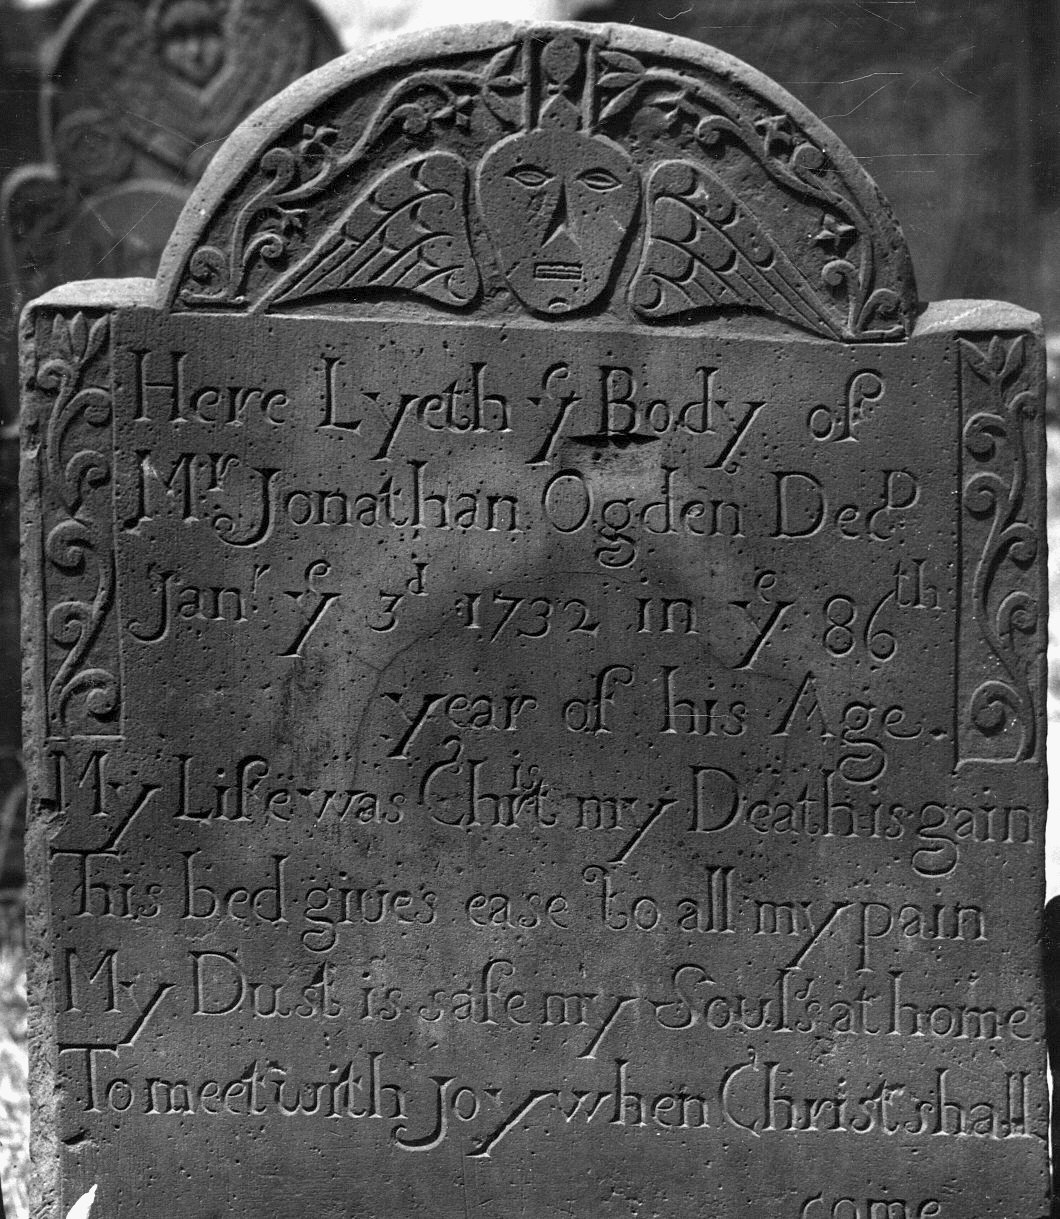 Here Lyeth yᵉ Body of
Mʳ Jonathan Ogden Decᴰ
Janʳ yᵉ 3ᵈ 1732 in yᵉ 86ᵗʰ
year of his Age.
My Life was Chriſt my Death is gain
This bed gives ease to all my pain
My Dust is safe my Soul's at home
To meet with Joy when Christ shall
come